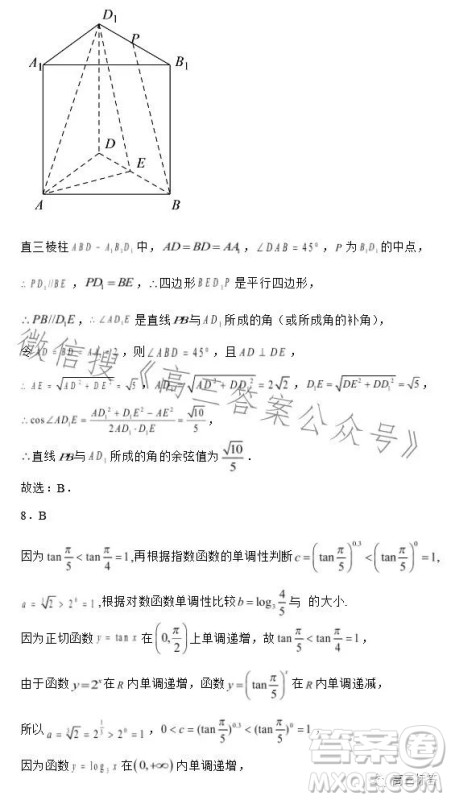 D₁
P
A₁
B₁
D
E
A
B
直三棱柱 ABD - A₁B₁D₁ 中，AD=BD=AA₁，∠DAB=45°，P 为 B₁D₁ 的中点，
∴ PD₁//BE，PD₁=BE，∴四边形 BED₁P 是平行四边形，
∴PB//D₁E，∴∠AD₁E 是直线 PB 与 AD₁ 所成的角（或所成角的补角），
令 AD=BD=AA₁=2，则∠ABD=45°，且 AD⊥DE，
∴ AE=√(AD²+DE²)=√5，AD₁=√(AD²+DD₁²)=2√2，D₁E=√(DE²+DD₁²)=√5，
∴cos∠AD₁E=(AD₁²+D₁E²-AE²)/(2AD₁·D₁E)=√10/5，
∴直线 PB 与 AD₁ 所成的角的余弦值为 √10/5．
故选：B．
8．B
因为 tan π/5 < tan π/4 = 1,再根据指数函数的单调性判断 c=(tan π/5)^0.3 < (tan π/5)^0 = 1,
a=∛2>2⁰=1,根据对数函数单调性比较 b=log₃ 4/5 与 的大小.
因为正切函数 y=tan x 在 (0,π/2) 上单调递增，故 tan π/5 < tan π/4 = 1，
由于函数 y=2ˣ 在 R 内单调递增，函数 y=(tan π/5)ˣ 在 R 内单调递减，
所以 a=∛2=2^(1/3)>2⁰=1，0<c=(tan π/5)^0.3<(tan π/5)^0=1，
因为函数 y=log₃x 在 (0,+∞) 内单调递增，
微信搜《高三答案公众号》
答案圈